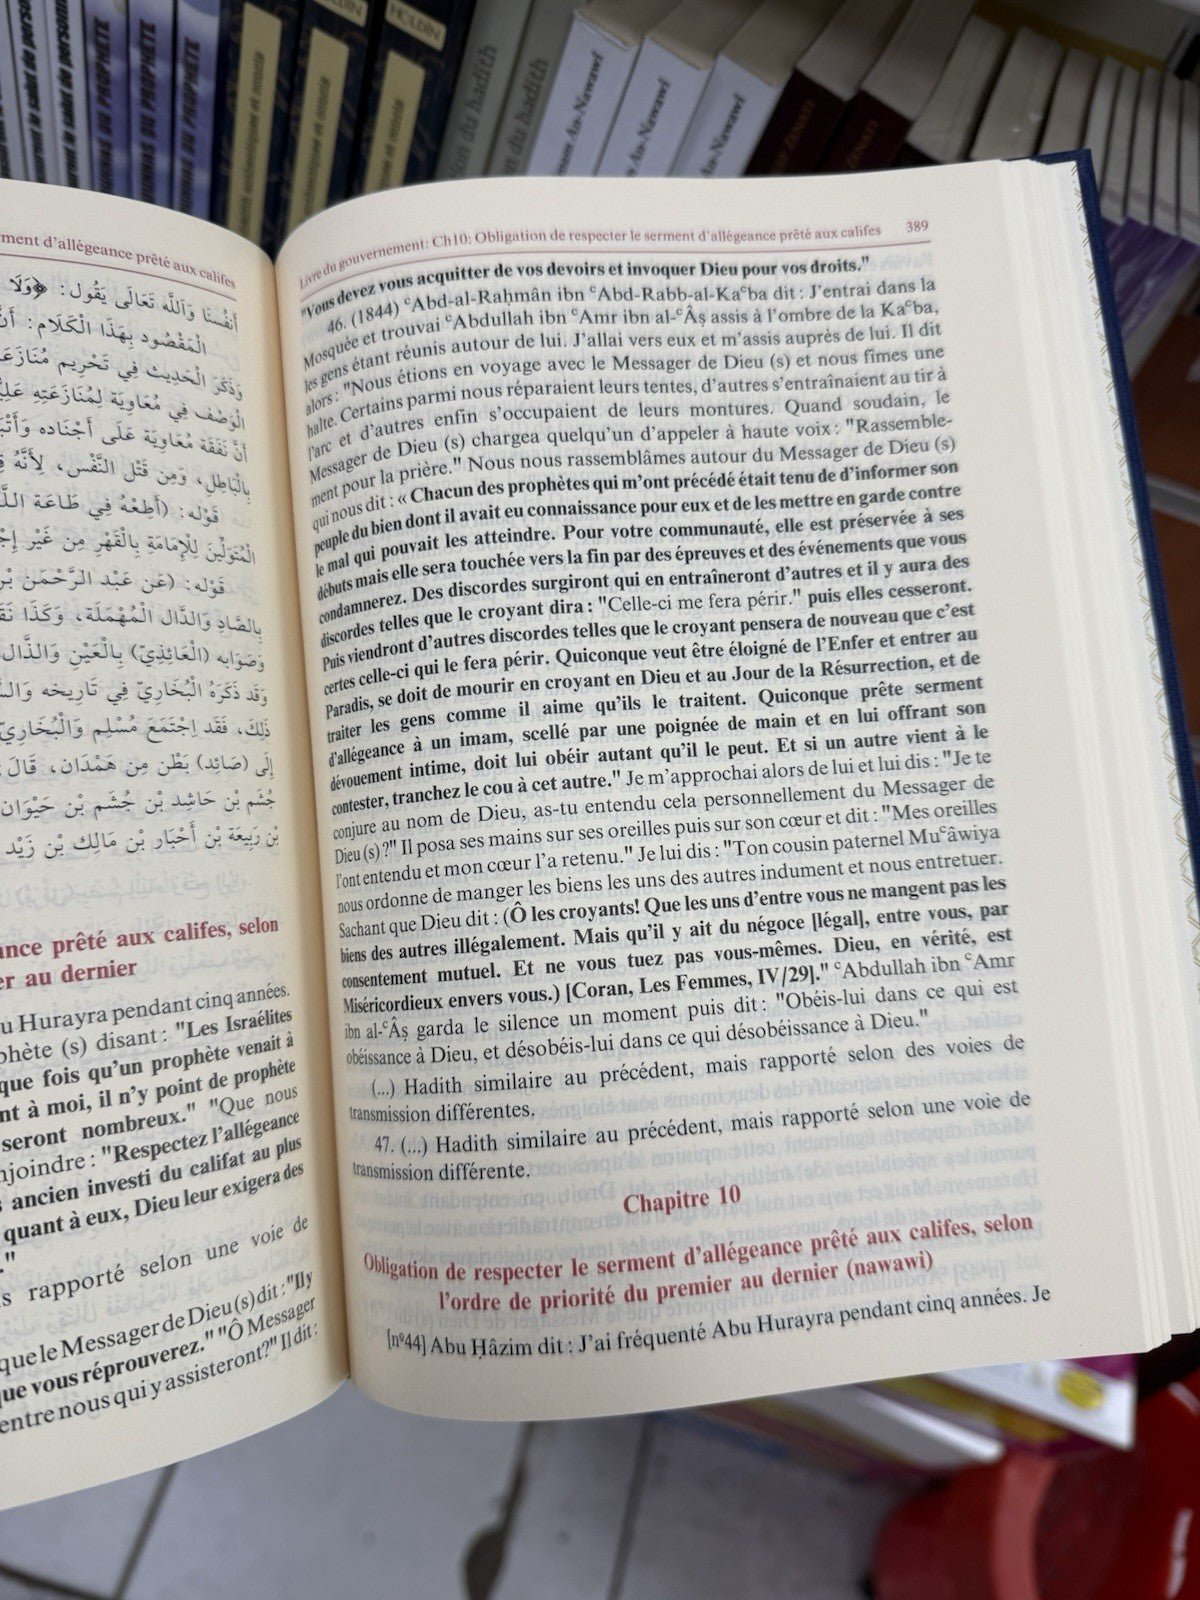 DU PROPHÈTE
DU PROPHÈTE
DU PROPHÈTE
HOLDÎN
du hadith
du hadith
An-Nawawî
An-Nawawî
An-Nawawî
ZENATI
serment d'allégeance prêté aux califes
أَنْفُسَنَا وَاللَّه تَعَالَى يَقُول: ﴿وَلَا
الْمَقْصُود بِهَذَا الْكَلَام: أَنَّ
وَذَكَرَ الْحَدِيث فِي تَحْرِيم مُنَازَعَة
الْوَصْف فِي مُعَاوِيَة لِمُنَازَعَتِهِ عَلِيًّا
أَنَّ نَفَقَة مُعَاوِيَة عَلَى أَجْنَاده وَأَتْبَاعه
بِالْبَاطِلِ، وَمِن قَتْل النَّفْس، لِأَنَّهُ
قَوْله: (أَطِعْهُ فِي طَاعَة اللَّه
الْمُتَوَلِّينَ لِلْإِمَامَةِ بِالْقَهْرِ مِن غَيْر
قَوْله: (عَن عَبْد الرَّحْمَن بْن
بِالصَّادِ وَالدَّال الْمُهْمَلَة، وَكَذَا
وَصَوَابه (الْعَائِذِيّ) بِالْعَيْنِ وَالذَّال
وَقَد ذَكَرَهُ الْبُخَارِيّ فِي تَارِيخه
ذَلِكَ، فَقَد اِجْتَمَعَ مُسْلِم وَالْبُخَارِيّ
إِلَى (صَائِد) بَطْن مِن هَمْدَان، قَالَ
جُشَم بْن حَاشِد بْن جُشَم بْن حَيْوَان
بْن رَبِيعَة بْن أَحْبَار بْن مَالِك بْن زَيْد
prêté aux califes, selon
er au dernier
Hurayra pendant cinq années.
(s) disant : "Les Israélites
que fois qu'un prophète venait à
à moi, il n'y point de prophète
seront nombreux." "Que nous
"Respectez l'allégeance
ancien investi du califat au plus
quant à eux, Dieu leur exigera des
rapporté selon une voie de
que le Messager de Dieu (s) dit : "Il y
que vous réprouverez." "Ô Messager
entre nous qui y assisteront?" Il dit :
Livre du gouvernement: Ch10: Obligation de respecter le serment d'allégeance prêté aux califes 389
"Vous devez vous acquitter de vos devoirs et invoquer Dieu pour vos droits."
46. (1844) ᶜAbd-al-Raḥmân ibn ᶜAbd-Rabb-al-Kaᶜba dit : J'entrai dans la
Mosquée et trouvai ᶜAbdullah ibn ᶜAmr ibn al-ᶜÂṣ assis à l'ombre de la Kaᶜba,
les gens étant réunis autour de lui. J'allai vers eux et m'assis auprès de lui. Il dit
alors : "Nous étions en voyage avec le Messager de Dieu (s) et nous fîmes une
halte. Certains parmi nous réparaient leurs tentes, d'autres s'entraînaient au tir à
l'arc et d'autres enfin s'occupaient de leurs montures. Quand soudain, le
Messager de Dieu (s) chargea quelqu'un d'appeler à haute voix : "Rassemble-
ment pour la prière." Nous nous rassemblâmes autour du Messager de Dieu (s)
qui nous dit : « Chacun des prophètes qui m'ont précédé était tenu de d'informer son
peuple du bien dont il avait eu connaissance pour eux et de les mettre en garde contre
le mal qui pouvait les atteindre. Pour votre communauté, elle est préservée à ses
débuts mais elle sera touchée vers la fin par des épreuves et des événements que vous
condamnerez. Des discordes surgiront qui en entraîneront d'autres et il y aura des
discordes telles que le croyant dira : "Celle-ci me fera périr." puis elles cesseront.
Puis viendront d'autres discordes telles que le croyant pensera de nouveau que c'est
certes celle-ci qui le fera périr. Quiconque veut être éloigné de l'Enfer et entrer au
Paradis, se doit de mourir en croyant en Dieu et au Jour de la Résurrection, et de
traiter les gens comme il aime qu'ils le traitent. Quiconque prête serment
d'allégeance à un imam, scellé par une poignée de main et en lui offrant son
dévouement intime, doit lui obéir autant qu'il le peut. Et si un autre vient à le
contester, tranchez le cou à cet autre." Je m'approchai alors de lui et lui dis : "Je te
conjure au nom de Dieu, as-tu entendu cela personnellement du Messager de
Dieu (s)?" Il posa ses mains sur ses oreilles puis sur son cœur et dit : "Mes oreilles
l'ont entendu et mon cœur l'a retenu." Je lui dis : "Ton cousin paternel Muᶜâwiya
nous ordonne de manger les biens les uns des autres indument et nous entretuer.
Sachant que Dieu dit : (Ô les croyants! Que les uns d'entre vous ne mangent pas les
biens des autres illégalement. Mais qu'il y ait du négoce [légal], entre vous, par
consentement mutuel. Et ne vous tuez pas vous-mêmes. Dieu, en vérité, est
Miséricordieux envers vous.) [Coran, Les Femmes, IV/29]." ᶜAbdullah ibn ᶜAmr
ibn al-ᶜÂṣ garda le silence un moment puis dit : "Obéis-lui dans ce qui est
obéissance à Dieu, et désobéis-lui dans ce qui désobéissance à Dieu."
(...) Hadith similaire au précédent, mais rapporté selon des voies de
transmission différentes.
47. (...) Hadith similaire au précédent, mais rapporté selon une voie de
transmission différente.
Chapitre 10
Obligation de respecter le serment d'allégeance prêté aux califes, selon
l'ordre de priorité du premier au dernier (nawawi)
[nº44] Abu Ḥâzim dit : J'ai fréquenté Abu Hurayra pendant cinq années. Je